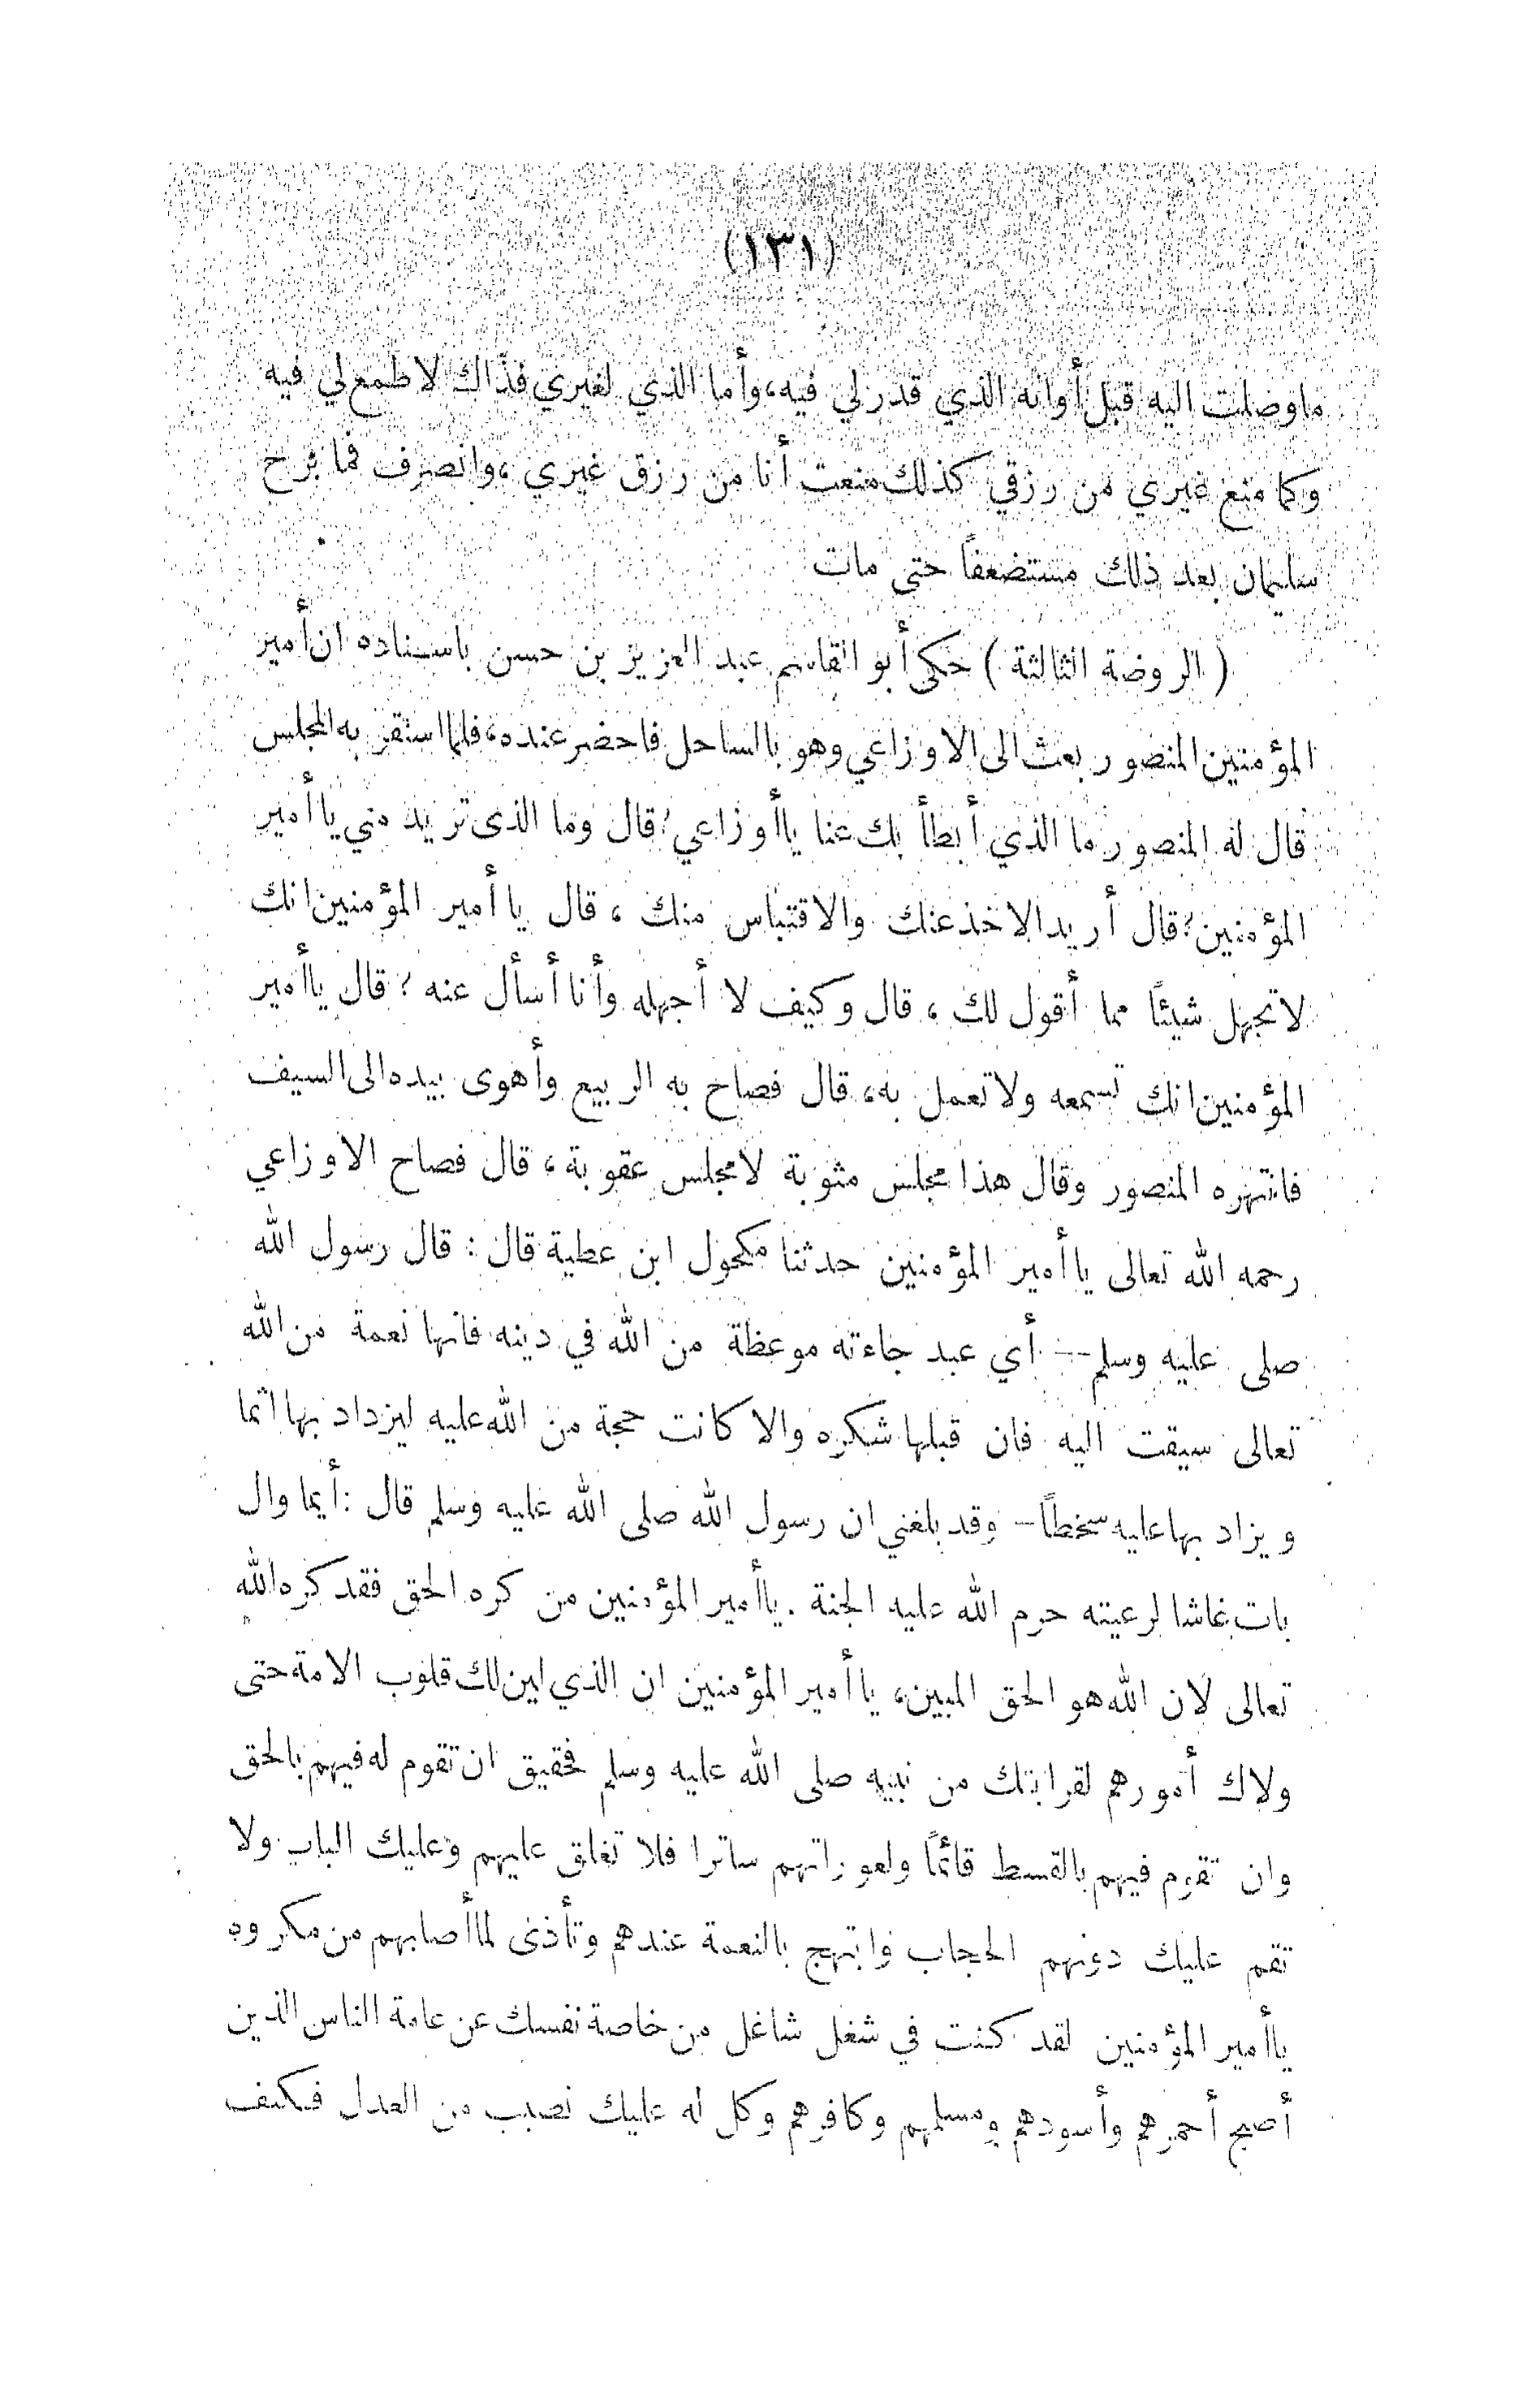 (١٣١)
ماوصلت اليه قبل أوانه الذي قدر لي فيه، وأما الذي لغيري فذاك لا طمع لي فيه
وكما منع غيري من رزقي كذلك منعت أنا من رزق غيري ، وانصرف فما برح
سليمان بعد ذلك مستضعفاً حتى مات
( الروضة الثالثة ) حكى أبو القاسم عبد العزيز بن حسن باسناده ان أمير
المؤمنين المنصور بعث الى الاوزاعي وهو بالساحل فاحضر عنده، فلما استقر به المجلس
قال له المنصور ما الذي أبطأ بك عنا ياأوزاعي؟ قال وما الذى تريد مني ياأمير
المؤمنين؟ قال أريد الاخذ عنك والاقتباس منك ، قال ياأمير المؤمنين انك
لا تجهل شيئاً مما أقول لك ، قال وكيف لا أجهله وأنا أسأل عنه ؟ قال ياأمير
المؤمنين انك تسمعه ولا تعمل به، قال فصاح به الربيع وأهوى بيده الى السيف
فانتهره المنصور وقال هذا مجلس مثوبة لا مجلس عقوبة ، قال فصاح الاوزاعي
رحمه الله تعالى ياأمير المؤمنين حدثنا مكحول ابن عطية قال : قال رسول الله
صلى عليه وسلم -- أي عبد جاءته موعظة من الله في دينه فانها نعمة من الله
تعالى سيقت اليه فان قبلها شكره والا كانت حجة من الله عليه ليزداد بها اثما
ويزاد بها عليه سخطاً - وقد بلغني ان رسول الله صلى الله عليه وسلم قال : أيما وال
بات غاشا لرعيته حرم الله عليه الجنة . ياأمير المؤمنين من كره الحق فقد كره الله
تعالى لان الله هو الحق المبين، ياأمير المؤمنين ان الذي لين لك قلوب الامة حتى
ولاك أمورهم لقرابتك من نبيه صلى الله عليه وسلم فحقيق ان تقوم له فيهم بالحق
وان تقوم فيهم بالقسط قائماً ولعوراتهم ساترا فلا تغلق عليهم وعليك الباب ولا
تقم عليك دونهم الحجاب وابتهج بالنعمة عندهم وتأذى لما أصابهم من مكروه
ياأمير المؤمنين لقد كنت في شغل شاغل من خاصة نفسك عن عامة الناس الذين
أصبح أحمرهم وأسودهم ومسلمهم وكافرهم وكل له عليك نصيب من العدل فكيف